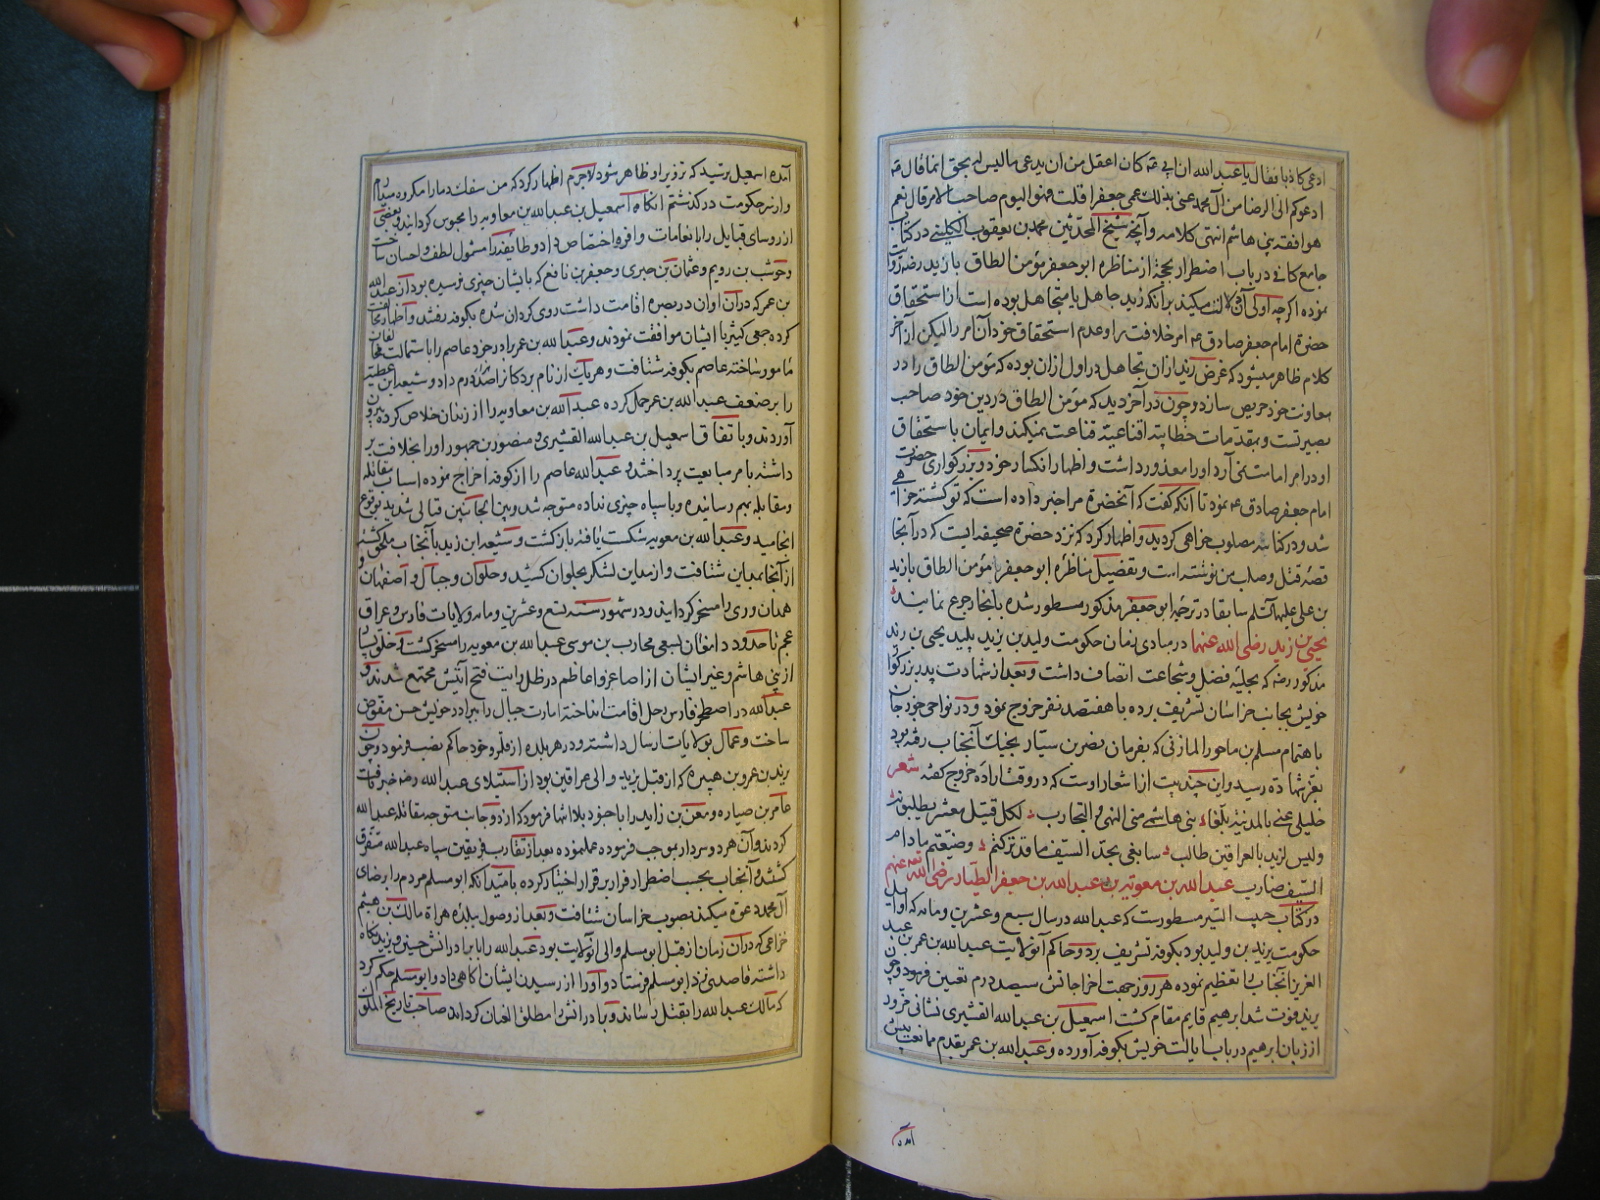 ادعی کاذبا فقال یا عبدالله ان ابی عم کان اعقل من ان یدعی ما لیس له بحق انما قال عم
ادعوکم الی الرضا من آل محمد عنی بذلک عمی جعفرا قلت فهو الیوم صاحب الامر قال نعم
هو افقه بنی هاشم انتهی کلامه و آنچه شیخ المحدثین محمد بن یعقوب الکلینی در کتاب
جامع کافی در باب اضطرار بحجة از مناظره ابو جعفر مؤمن الطاق با زید رضه روایت
نموده اگرچه اولی آن دلالت میکند بر آنکه زید جاهل یا متجاهل بوده است از استحقاق
حضرة امام جعفر صادق عم امر خلافت را و عدم استحقاق خود آن امر را لیکن از آخر
کلام ظاهر میشود که غرض زید از ان تجاهل در اول ازان بوده که مؤمن الطاق را در
معاونت خود حریص سازد و چون در آخر دید که مؤمن الطاق در دین خود صاحب
بصیرتست و بمقدمات خطابیه اقناعیه قناعت نمیکند و ایمان باستحقاق
او در امر امامت نمی آرد او را معذور داشت و اظهار انکسار خود و بزرگواری حضرت
امام جعفر صادق عم نمود تا آنکه گفت که آنحضرة مرا خبر داده است که تو کشته خواهی
شد و در کناسه مصلوب خواهی گردید و اظهار کرد که نزد حضرة صحیفه ایست که در آنجا
قصه قتل و صلب من نوشته است و تفصیل مناظره ابو جعفر مؤمن الطاق با زید
بن علی علیهما السلم سابقا در ترجمه ابو جعفر مذکور مسطور شده بانجا رجوع نمایند
یحیی بن زید رضی الله عنهما در مبادی زمان حکومت ولید بن یزید پلید یحیی بن زید
مذکور رضه که بحلیه فضل و شجاعت اتصاف داشت و بعد از شهادت پدر بزرکوار
خویش بجانب خراسان تشریف برده با هفتصد نفر خروج نمود و در نواحی جوزجان
باهتمام مسلم بن ماحور المازنی که بفرمان نصر بن سیار بجنک آنجناب رفته بود
بعز شهادة رسید و این چند بیت از اشعار اوست که در وقت اراده خروج کفته شعر
خلیلی عنی بالمدینة بلغا بنی هاشم منی النهی و التجارب لکل قتیل معشر یطلبونه
ولیس لزید بالعراقین طالب سابغی بحد السیف ما قد ترکتم وضیعتم ما دام
السیف ضارب عبدالله بن معویة بن عبدالله بن جعفر الطیار رضی الله تعالی عنهم
در کتاب حبیب السیر مسطورست که عبدالله در سال سبع و عشرین و مایه که اوایل
حکومت یزید بن ولید بود بکوفه تشریف برد و حاکم آنولایت عبدالله بن عمر بن عبد
العزیز آنجناب را تعظیم نموده هر روز جهت اخراجاتش سیصد درم تعیین فرمود و چون
یزید فوت شد ابرهیم قایم مقام کشت اسمعیل بن عبدالله القشیری نشانی مزور
از زبان ابرهیم در باب ایالت خویش بکوفه آورده و عبدالله بن عمر بقدم ممانعت پیش
آمده
آمده اسمعیل ترسید که تزویر او ظاهر شود لاجرم اظهار کرد که من سفک دما را مکروه میدارم
و از سر حکومت در کذشتم انکاه اسمعیل بن عبدالله بن معاویه را محبوس کردانید و بعضی
از روسای قبایل را بانعامات وافره اختصاص داد و طایفه را مشمول لطف و احسان ساخت
و حوشب بن رویم و عثمان بن خیبری و جعفر بن نافع که بایشان چیزی نرسیده بود از عبدالله
بن عمر که در آن اوان در بصره اقامت داشت روی کردان شده بکوفه رفتند و اظهار مخالفت
کرده جمعی کثیر با ایشان موافقت نمودند و عبدالله بن عمر برادر خود عاصم را باستمالت مخالفان
مامور ساخته عاصم بکوفه شتافت و هر یک از نام بردکانرا صد درم داد و شیعه این عطیه
را بر ضعف عبدالله بن عمر حمل کرده عبدالله بن معاویه را از زندان خلاص کرده بیرون
آوردند و باتفاق اسمعیل بن عبدالله القشیری و منصور بن جمهور او را بخلافت بر
داشته بامر مبایعت پرداختند و عبدالله عاصم را از کوفه اخراج نموده اسباب مقاتله
و مقابله بهم رسانیده و با سپاه چیزی نداده متوجه شد و بین الجانبین قتالی شدید بوقوع
انجامید و عبدالله بن معویه شکست یافته باز کشت و شیعه ابن زید بآنجناب ملحق کشته
از آنجا بمداین شتافت و از مداین لشکر بحلوان کشید و حلوان و جبال و اصفهان و
همدان و ری را مسخر کردانید و در شهور سنه تسع و عشرین و مایه ولایات فارس و عراق
عجم تا حدود دامغان بسعی محارب بن موسی عبدالله بن معویه را مسخر کشت و خلق بسیار
از بنی هاشم و غیر ایشان از اصاغر و اعاظم در ظل رایت فتح آیتش مجتمع شدند و
عبدالله در اصطخر فارس رحل اقامت انداخته امارت جبال را ببرادر خویش حسن مفوض
ساخت و عمال بولایات ارسال داشته و در هر بلده از قلمرو خود حاکم نصب فرمود و چون
یزید بن عمرو بن هبیره که از قبل یزید والی عراقین بود از استیلای عبدالله رضه خبر یافت
عامر بن ضباره و معن بن زایده را با جنود بلا انتها فرمود که از دو جانب متوجه مقاتله عبدالله
کردند و آن هر دو سردار بموجب فرموده عمل نموده بعد از تقارب فریقین سپاه عبدالله متفرق
کشته و آنجناب بحسب اضطرار فرار بر قرار اختیار کرده بامید آنکه ابو مسلم مردم را برضای
آل محمد دعوة میکند بصوب خراسان شتافت و بعد از وصول ببلده هراة مالک بن هیثم
خزاعی که در آن زمان از قبل ابو مسلم والی آنولایت بود عبدالله را با برادرانش حسن و یزید نکاه
داشته قاصدی نزد ابو مسلم فرستاد و او را از رسیدن ایشان آکاهی داد و ابو مسلم حکم کرد
که مالک عبدالله را بقتل رساند و برادرانش را مطلق العنان کرداند صاحب تاریخ الملوک